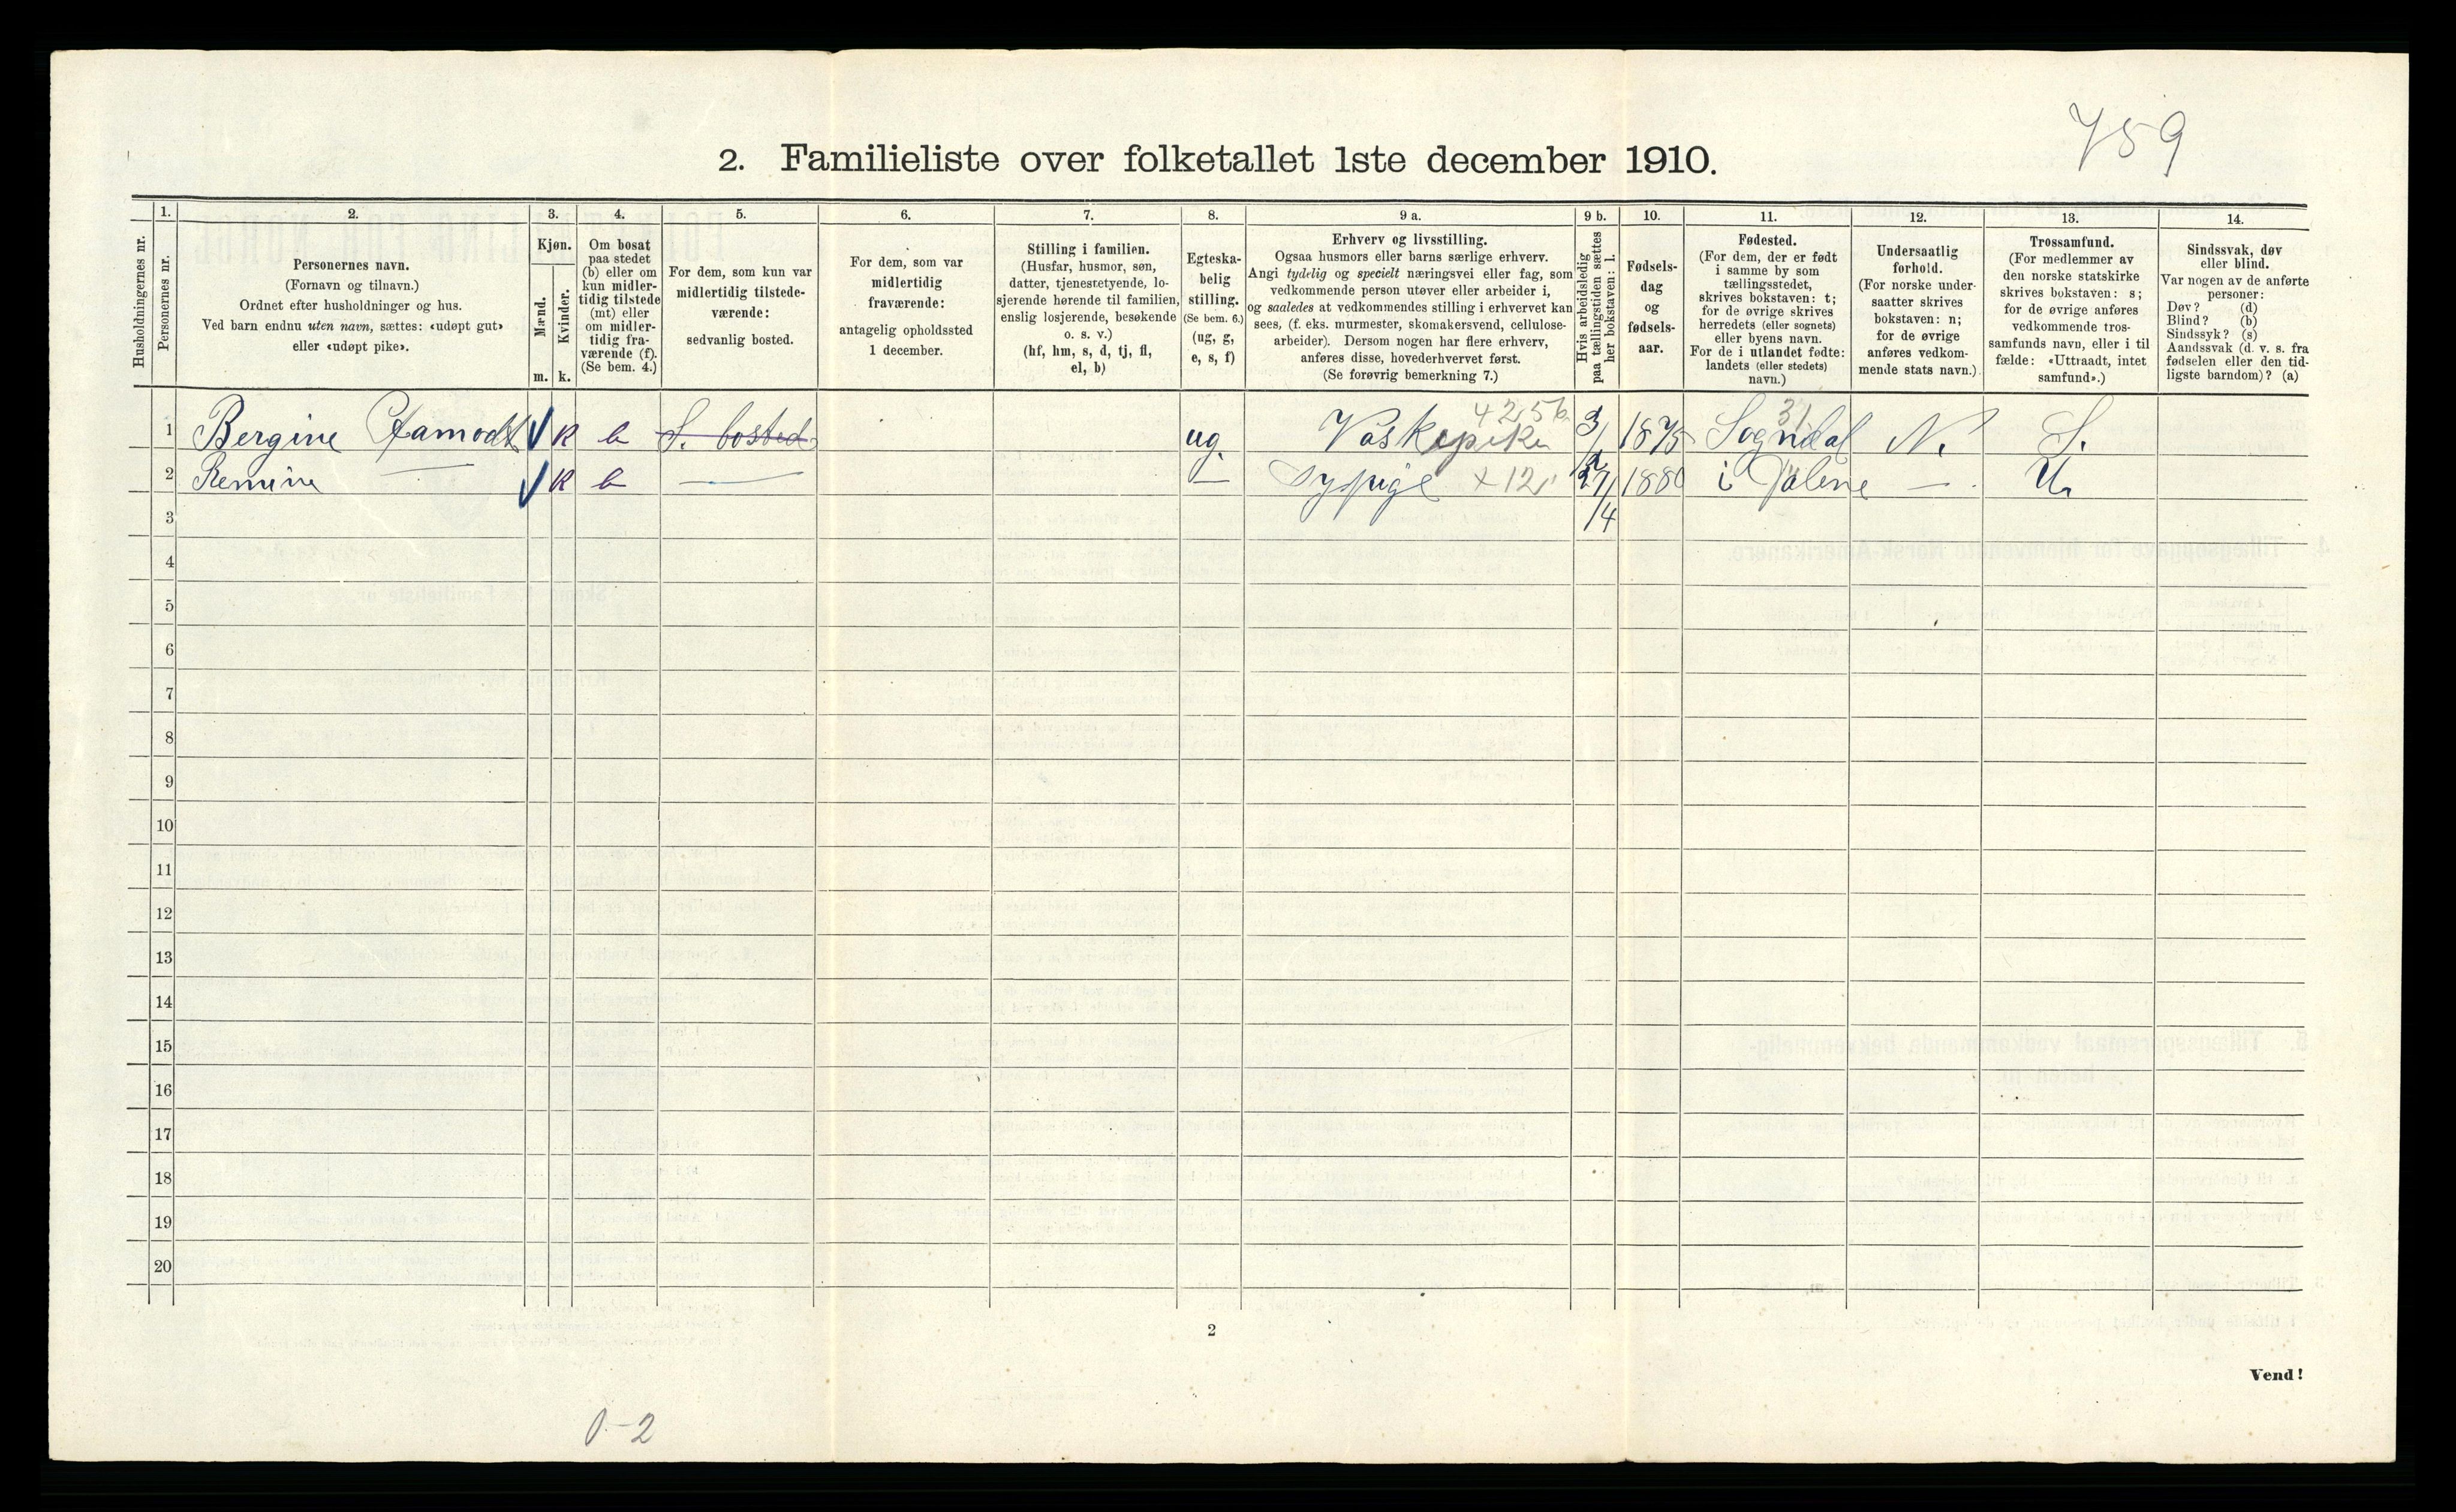 759
2. Familieliste over folketallet 1ste december 1910.
1. 2. 3. 4. 5. 6. 7. 8. 9 a. 9 b. 10. 11. 12. 13. 14.
Husholdningernes nr.
Personernes nr.
Personernes navn.
(Fornavn og tilnavn.)
Ordnet efter husholdninger og hus.
Ved barn endnu uten navn, sættes: «udøpt gut»
eller «udøpt pike».
Kjøn.
Mænd.
m.
Kvinder.
k.
Om bosat
paa stedet
(b) eller om
kun midler-
tidig tilstede
(mt) eller
om midler-
tidig fra-
værende (f).
(Se bem. 4.)
For dem, som kun var
midlertidig tilstede-
værende:
sedvanlig bosted.
For dem, som var
midlertidig
fraværende:
antagelig opholdssted
1 december.
Stilling i familien.
(Husfar, husmor, søn,
datter, tjenestetyende, lo-
sjerende hørende til familien,
enslig losjerende, besøkende
o. s. v.)
(hf, hm, s, d, tj, fl,
el, b)
Egteska-
belig
stilling.
(Se bem. 6.)
(ug, g,
e, s, f)
Erhverv og livsstilling.
Ogsaa husmors eller barns særlige erhverv.
Angi tydelig og specielt næringsvei eller fag, som
vedkommende person utøver eller arbeider i,
og saaledes at vedkommendes stilling i erhvervet kan
sees, (f. eks. murmester, skomakersvend, cellulose-
arbeider). Dersom nogen har flere erhverv,
anføres disse, hovederhvervet først.
(Se forøvrig bemerkning 7.)
Hvis arbeidsledig
paa tællingstiden sættes
her bokstaven: l.
Fødsels-
dag
og
fødsels-
aar.
Fødested.
(For dem, der er født
i samme by som
tællingsstedet,
skrives bokstaven: t;
for de øvrige skrives
herredets (eller sognets)
eller byens navn.
For de i utlandet fødte:
landets (eller stedets)
navn.)
Undersaatlig
forhold.
(For norske under-
saatter skrives
bokstaven: n;
for de øvrige
anføres vedkom-
mende stats navn.)
Trossamfund.
(For medlemmer av
den norske statskirke
skrives bokstaven: s;
for de øvrige anføres
vedkommende tros-
samfunds navn, eller i til
fælde: «Uttraadt, intet
samfund».)
Sindssvak, døv
eller blind.
Var nogen av de anførte
personer:
Døv? (d)
Blind? (b)
Sindssyk? (s)
Aandssvak (d. v. s. fra
fødselen eller den tid-
ligste barndom)? (a)
1 Bergine Aamodt k b S. bosted ug. Vaskepike 1875 Sogndal N. S.
2 Remine — k b — — Sypige + 12 27/4 1880 i Dalene — U.
3
4
5
6
7
8
9
10
11
12
13
14
15
16
17
18
19
20
2
Vend!
0-2